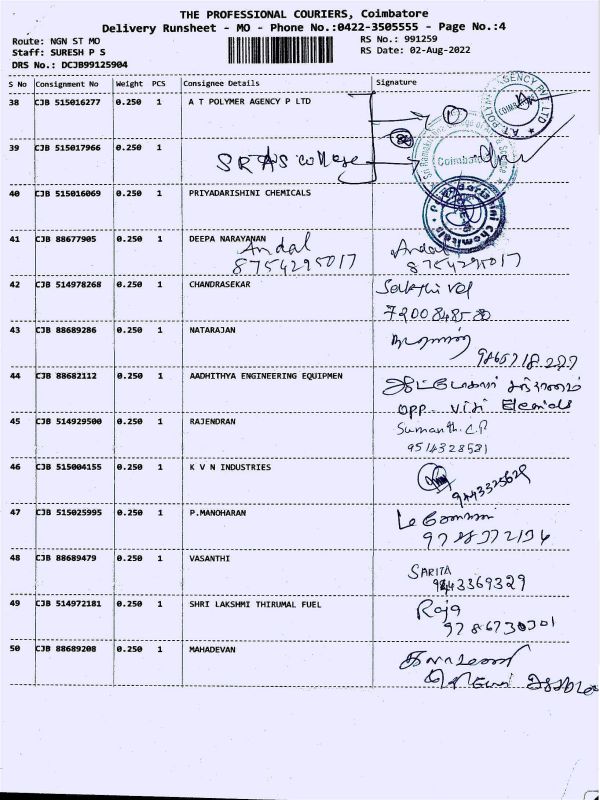 THE PROFESSIONAL COURIERS, Coimbatore
Delivery Runsheet - MO - Phone No.:0422-3505555 - Page No.:4
Route: NGN ST MO
RS No.: 991259
Staff: SURESH P S
RS Date: 02-Aug-2022
DRS No.: DCJB99125904
S No Consignment No Weight PCS Consignee Details Signature
38 CJB 515016277 0.250 1 A T POLYMER AGENCY P LTD
39 CJB 515017966 0.250 1 SRAS College
40 CJB 515016069 0.250 1 PRIYADARISHINI CHEMICALS
41 CJB 88677905 0.250 1 DEEPA NARAYANAN Andal Andal
8754295017 8754295017
42 CJB 514978268 0.250 1 CHANDRASEKAR Sakthivel
7200848580
43 CJB 88689286 0.250 1 NATARAJAN
44 CJB 88682112 0.250 1 AADHITHYA ENGINEERING EQUIPMEN
opp.
45 CJB 514929500 0.250 1 RAJENDRAN Sumanth. C.P
9514328531
46 CJB 515004155 0.250 1 K V N INDUSTRIES
9443325629
47 CJB 515025995 0.250 1 P.MANOHARAN
48 CJB 88689479 0.250 1 VASANTHI SARITA
9843369329
49 CJB 514972181 0.250 1 SHRI LAKSHMI THIRUMAL FUEL Raja
9786730301
50 CJB 88689208 0.250 1 MAHADEVAN